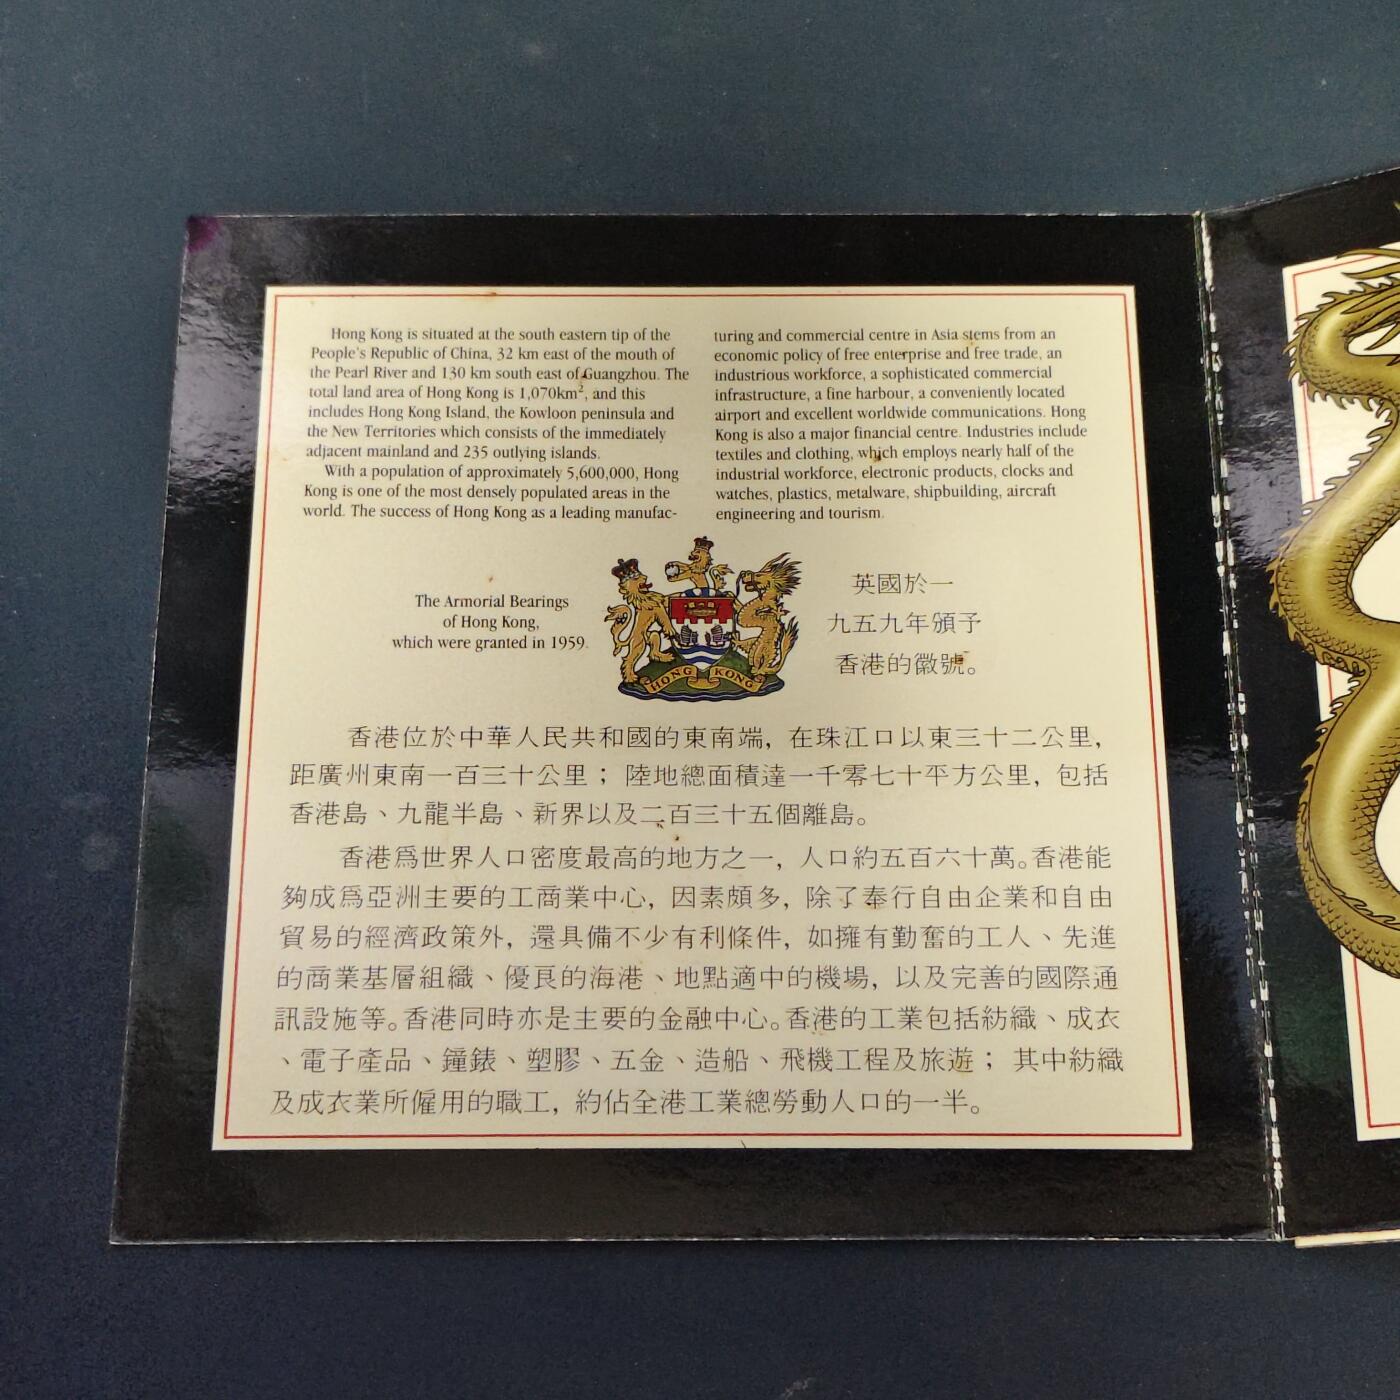 Hong Kong is situated at the south eastern tip of the
People's Republic of China, 32 km east of the mouth of
the Pearl River and 130 km south east of Guangzhou. The
total land area of Hong Kong is 1,070km², and this
includes Hong Kong Island, the Kowloon peninsula and
the New Territories which consists of the immediately
adjacent mainland and 235 outlying islands.
With a population of approximately 5,600,000, Hong
Kong is one of the most densely populated areas in the
world. The success of Hong Kong as a leading manufac-
turing and commercial centre in Asia stems from an
economic policy of free enterprise and free trade, an
industrious workforce, a sophisticated commercial
infrastructure, a fine harbour, a conveniently located
airport and excellent worldwide communications. Hong
Kong is also a major financial centre. Industries include
textiles and clothing, which employs nearly half of the
industrial workforce, electronic products, clocks and
watches, plastics, metalware, shipbuilding, aircraft
engineering and tourism.
The Armorial Bearings
of Hong Kong,
which were granted in 1959.
HONG KONG
英國於一
九五九年頒予
香港的徽號。
香港位於中華人民共和國的東南端，在珠江口以東三十二公里，
距廣州東南一百三十公里；陸地總面積達一千零七十平方公里，包括
香港島、九龍半島、新界以及二百三十五個離島。
香港爲世界人口密度最高的地方之一，人口約五百六十萬。香港能
夠成爲亞洲主要的工商業中心，因素頗多，除了奉行自由企業和自由
貿易的經濟政策外，還具備不少有利條件，如擁有勤奮的工人、先進
的商業基層組織、優良的海港、地點適中的機場，以及完善的國際通
訊設施等。香港同時亦是主要的金融中心。香港的工業包括紡織、成衣
、電子產品、鐘錶、塑膠、五金、造船、飛機工程及旅遊；其中紡織
及成衣業所僱用的職工，約佔全港工業總勞動人口的一半。